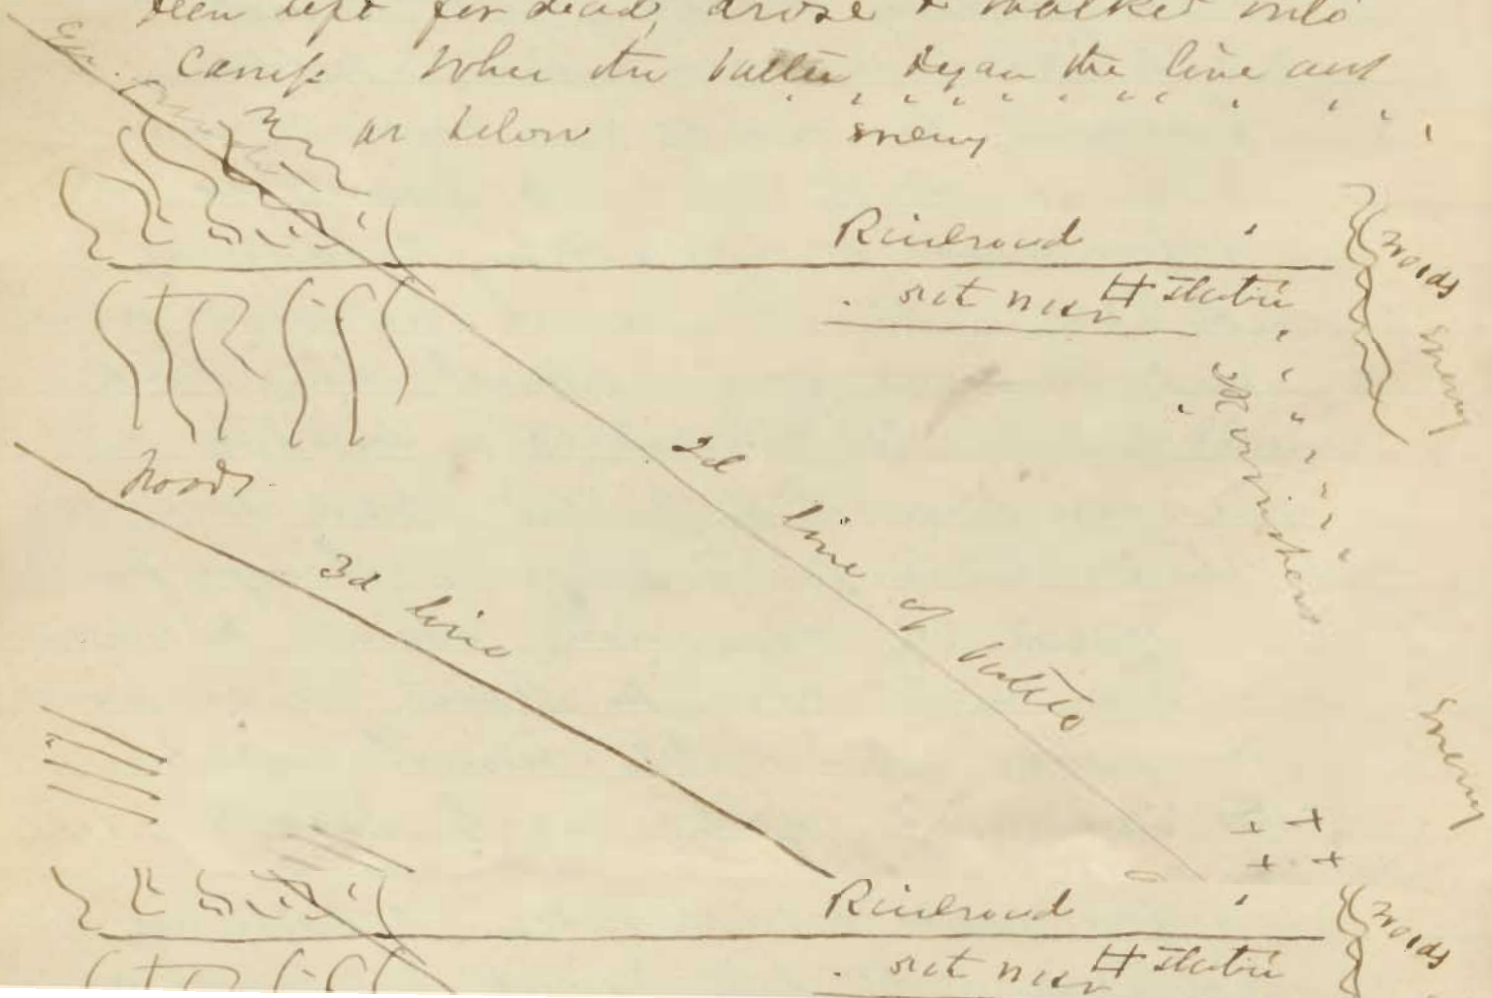 been left for dead, arose & walked into
camp When the battle began the line
as below
enemy
Railroad
woods
Station
enemy
Skirmishers
2d line of battle
Woods
3d line
enemy
Railroad
woods
Station